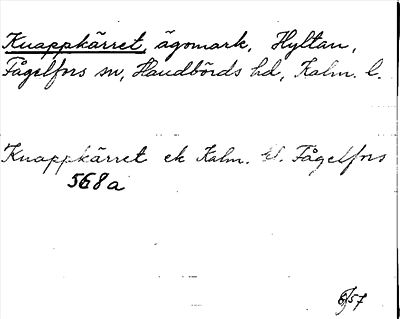 Knappkärret, ägomark, Hyltan,
Fågelfors sn, Handbörds hd, Kalm. l.
Knappkärret ek Kalm. bl. Fågelfors
568a
8/57